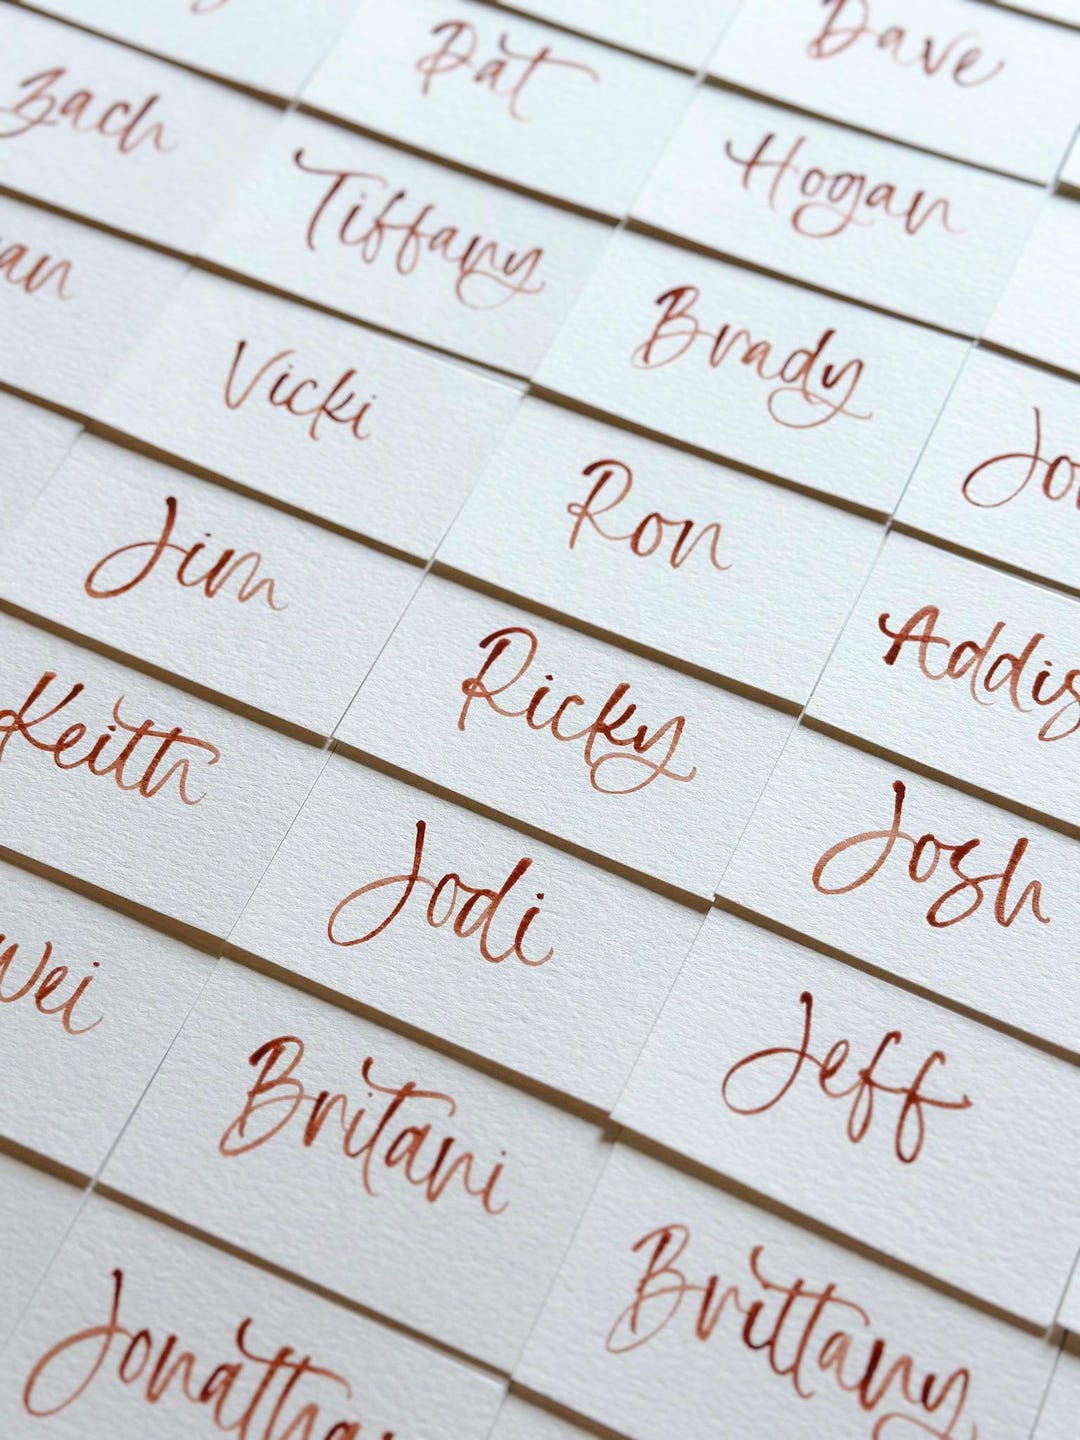 Pat
Dave
Zach
Tiffany
Hogan
an
Vicki
Brady
Jim
Ron
Jo
Keith
Ricky
Addis
Wei
Jodi
Josh
Britani
Jeff
Jonatha
Brittany